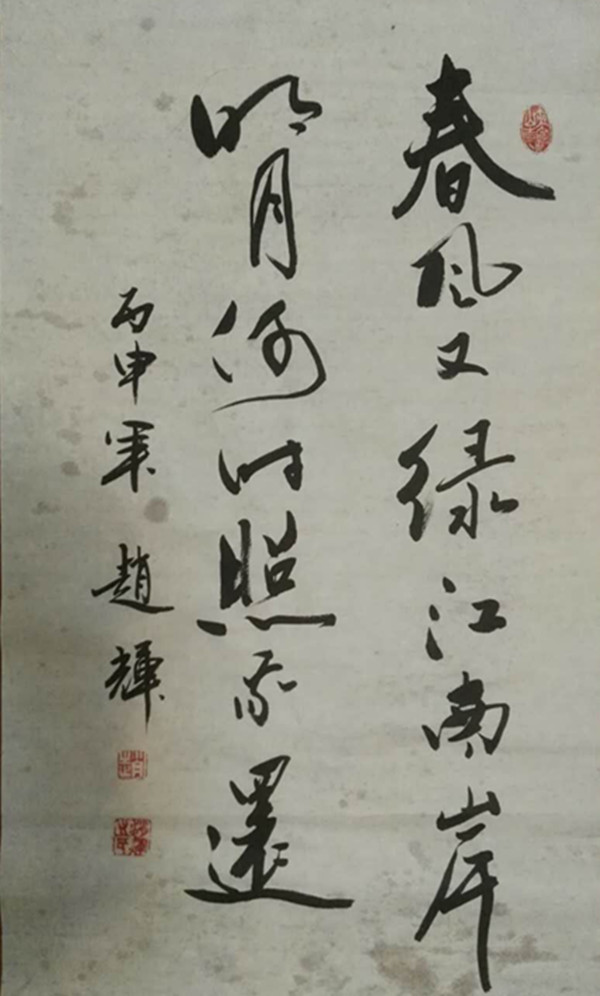 春风又绿江南岸
明月何时照我還
丙申年 趙輝